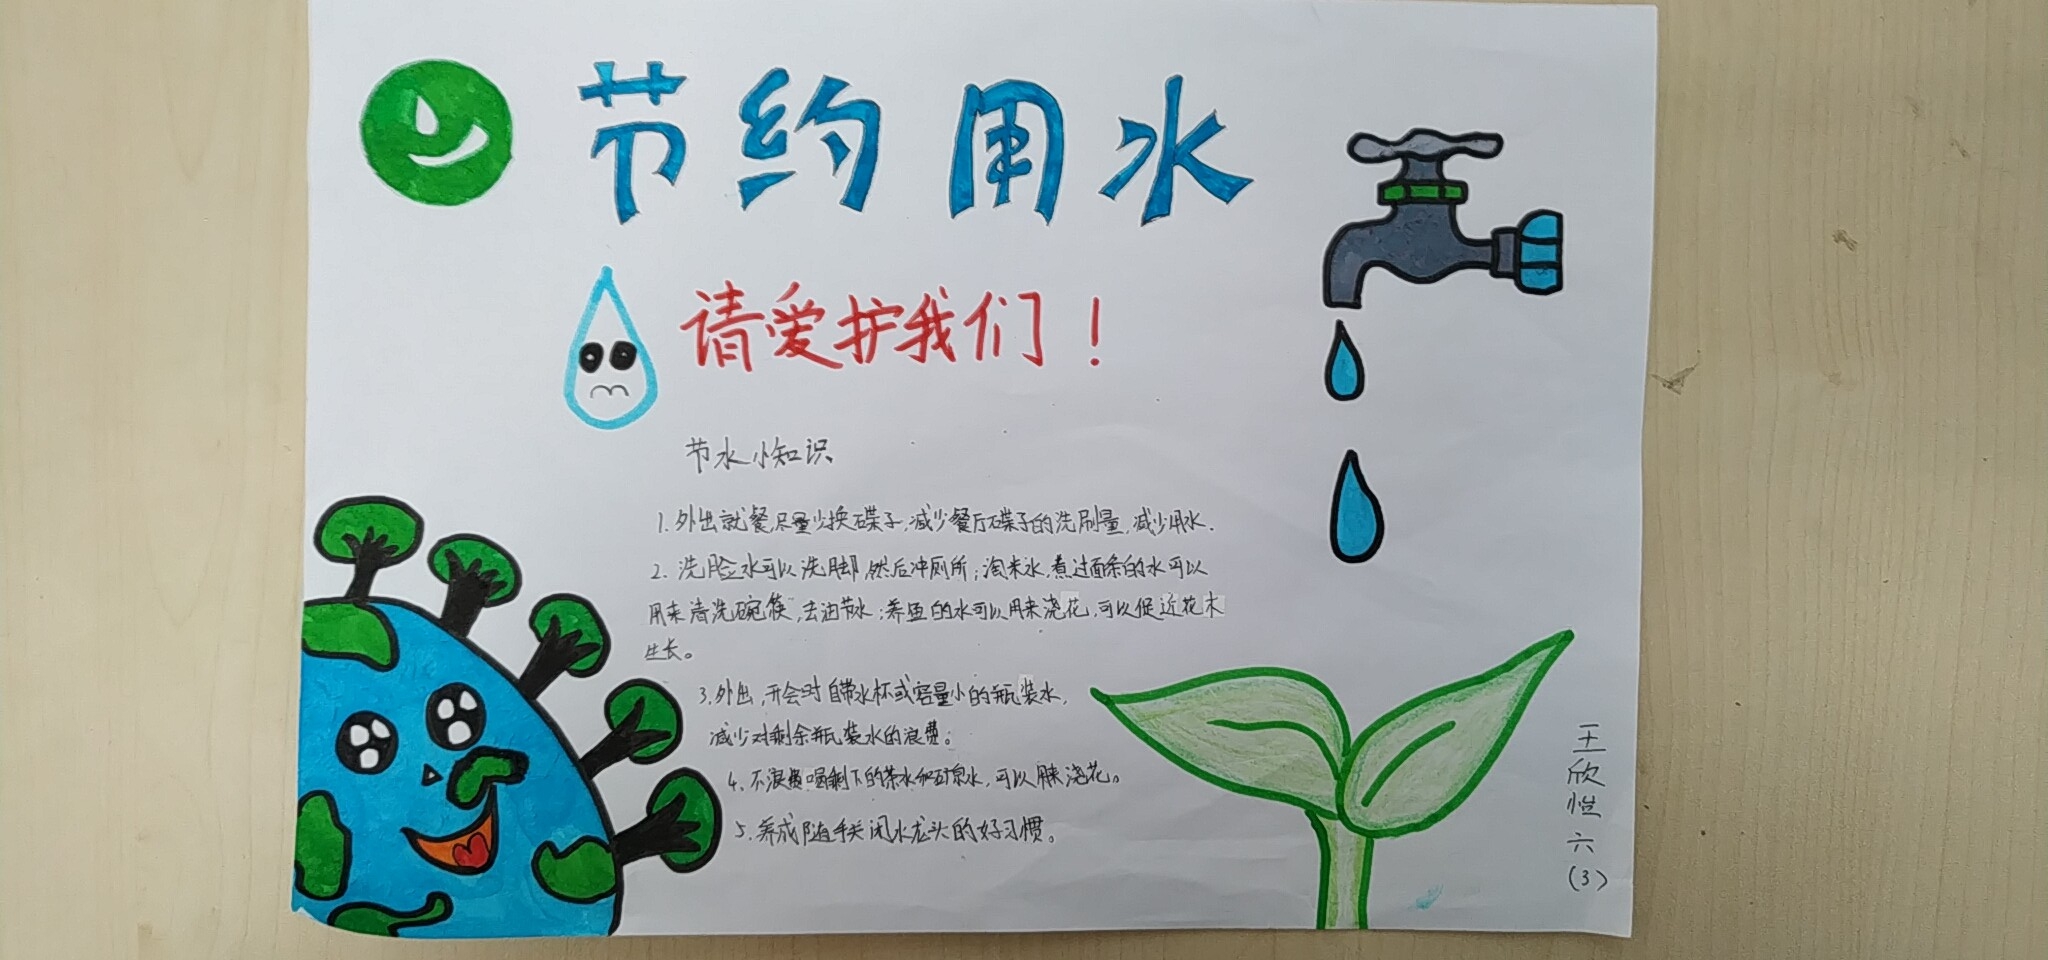 节约用水
请爱护我们！
节水小知识
1.外出就餐,尽量少换碟子,减少餐厅碟子的洗刷量,减少用水.
2.洗脸水可以洗脚,然后冲厕所;淘米水,煮过面条的水可以
用来清洗碗筷,去油节水;养鱼的水可以用来浇花,可以促近花木
生长。
3.外出,开会时自带水杯或容量小的瓶装水,
减少对剩余瓶装水的浪费。
4.不浪费喝剩下的茶水和矿泉水,可以用来浇花。
5.养成随手关闭水龙头的好习惯。
王欣性六(3)